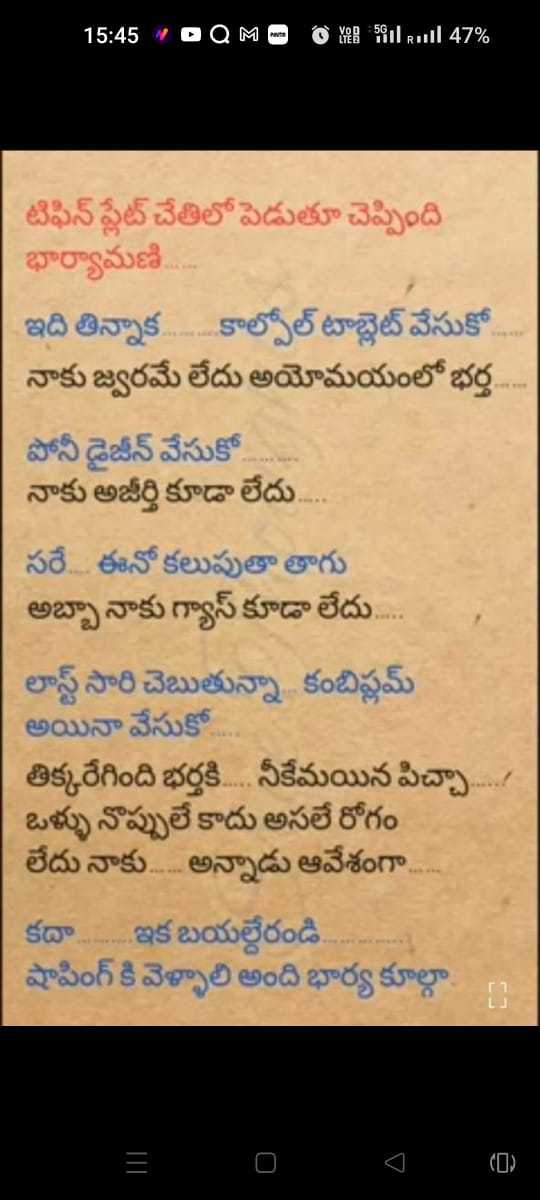 15:45 VoD LTE2 5G R 47%
టిఫిన్ ప్లేట్ చేతిలో పెడుతూ చెప్పింది
భార్యామణి......
ఇది తిన్నాక..........కాల్పోల్ టాబ్లెట్ వేసుకో......
నాకు జ్వరమే లేదు అయోమయంలో భర్త......
పోనీ డైజీన్ వేసుకో..........
నాకు అజీర్తి కూడా లేదు.....
సరే.... ఈనో కలుపుతా తాగు
అబ్బా నాకు గ్యాస్ కూడా లేదు.....
లాస్ట్ సారి చెబుతున్నా... కంబిఫ్లమ్
అయినా వేసుకో.....
తిక్కరేగింది భర్తకి..... నీకేమయిన పిచ్చా.....
ఒళ్ళు నొప్పులే కాదు అసలే రోగం
లేదు నాకు...... అన్నాడు ఆవేశంగా......
కదా..........ఇక బయల్దేరండి...............
షాపింగ్ కి వెళ్ళాలి అంది భార్య కూల్గా.